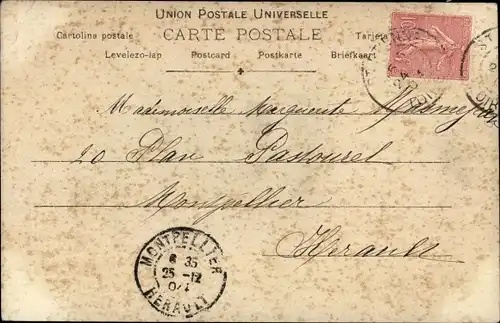 UNION POSTALE UNIVERSELLE
CARTE POSTALE
Cartolina postale
Tarjeta
Levelezo-lap Postcard Postkarte Briefkaart
Mademoiselle Marguerite
20 Plan Pastourel
Montpellier
Hérault
MONTPELLIER
6 35
25 -12
04
HERAULT